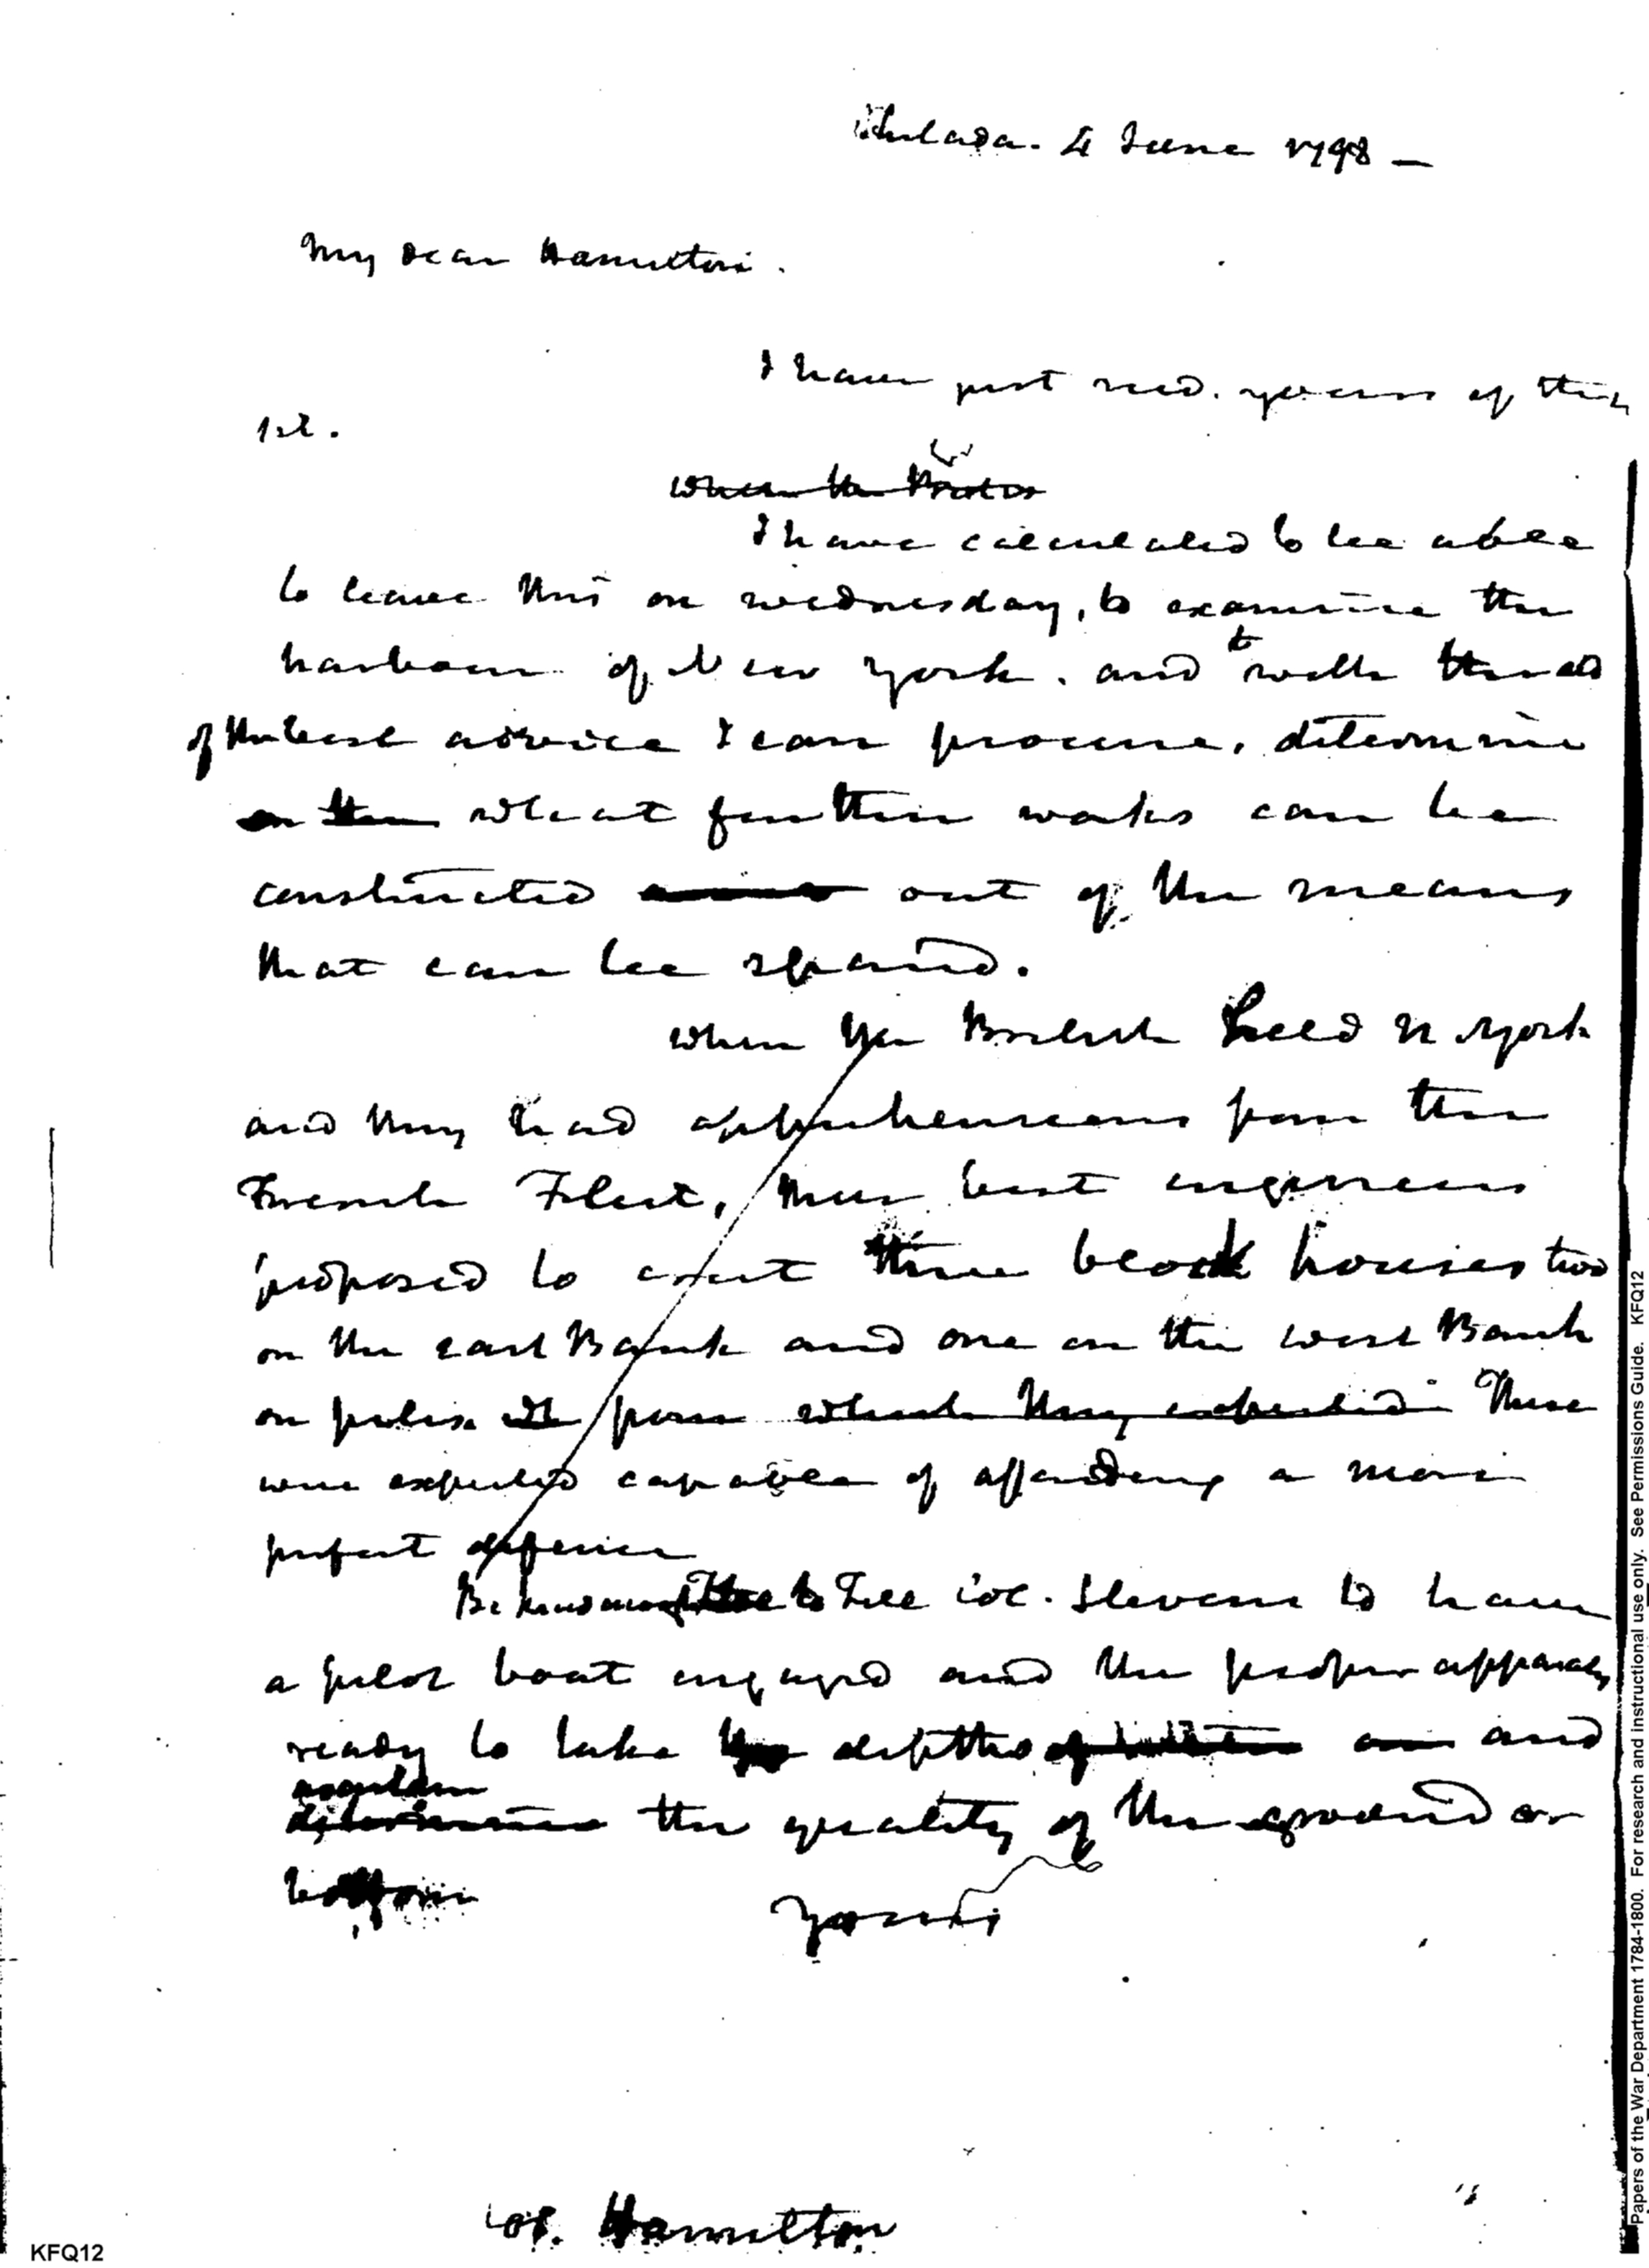 Philada. 4 June 1798 —
My Dear Hamilton.
I have just recd. yours of the
1st.
When the British
I have calculated to be able
to leave this on wednesday, to examine the
harbour of New York. and to with the aid
of the best advice I can procure, determine
on the what further works can be
constructed out of the means
that can be spared.
When the British held N York
and they had apprehensions from the
French Fleet, their best engineers
proposed to erect three block houses two
on the east Bank and one on the west Bank
on piles wh from which they expected These
were expected capable of affording a more
perfect defence
Be kind enough to Tell Col. Stevens to have
a pilot boat engaged and the proper apparatus
ready to take the depths of water and
ascertain
determine the quality of the ground or
bottom
Yours
Col. Hamilton
KFQ12
Papers of the War Department 1784-1800. For research and Instructional use only. See Permissions Guide. KFQ12